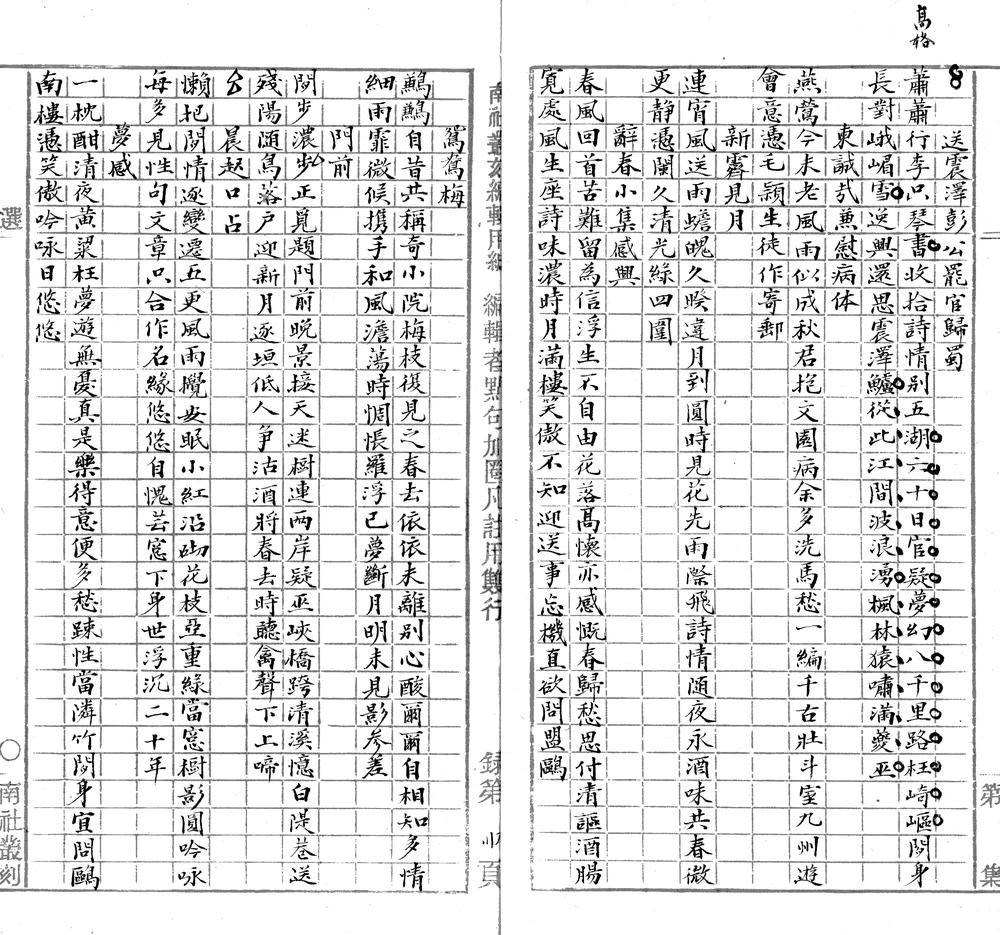 高格
送震澤彭公罷官歸蜀
蕭蕭行李只琴書收拾詩情別五湖六十日官疑夢幻八千里路枉崎嶇閒身
長對峨嵋雪逆興還思震澤鱸從此江間波浪湧楓林猿嘯滿夔巫
東誠哉兼慰病体
燕鶯今未老風雨似成秋君抱文園病余多洗馬愁一編千古壯斗室九州遊
會意憑毛穎生徒作寄郵
新霽見月
連宵風送雨蟾魄久暌違月到圓時見花先雨際飛詩情随夜永酒味共春微
更静憑闌久清光綠四圍
辭春小集感興
春風回首苦難留為信浮生不自由花落高懷亦感慨春歸愁思付清謳酒腸
寬處風生座詩味濃時月滿樓笑傲不知迎送事忘機直欲問盟鷗
第
集
南社叢刻編輯用紙
編輯者點句加圈凡註用雙行
錄第
頁
鴛鴦梅
鶼鶼自昔共稱奇小院梅枝復見之春去依依未離別心酸爾爾自相知多情
細雨霏微候携手和風澹蕩時惆悵羅浮已夢斷月明未見影参差
門前
閒步濃步正覓題門前晚景接天迷樹連两岸疑巫峽橋跨清溪憶白隄巷送
殘陽随鳥落户迎新月逐垣低人争沽酒將春去時聽禽聲下上啼
晨起口占
懶把閒情逐變遷五更風雨攪安眠小紅沿砌花枝亞重綠當窓樹影圓吟咏
每多見性句文章只合作名緣悠悠自愧芸窓下身世浮沉二十年
夢感
一枕酣清夜黃粱枉夢遊無憂真是樂得意便多愁踈性當隣竹閒身宜問鷗
南樓憑笑傲吟咏日悠悠
選
南社叢刻